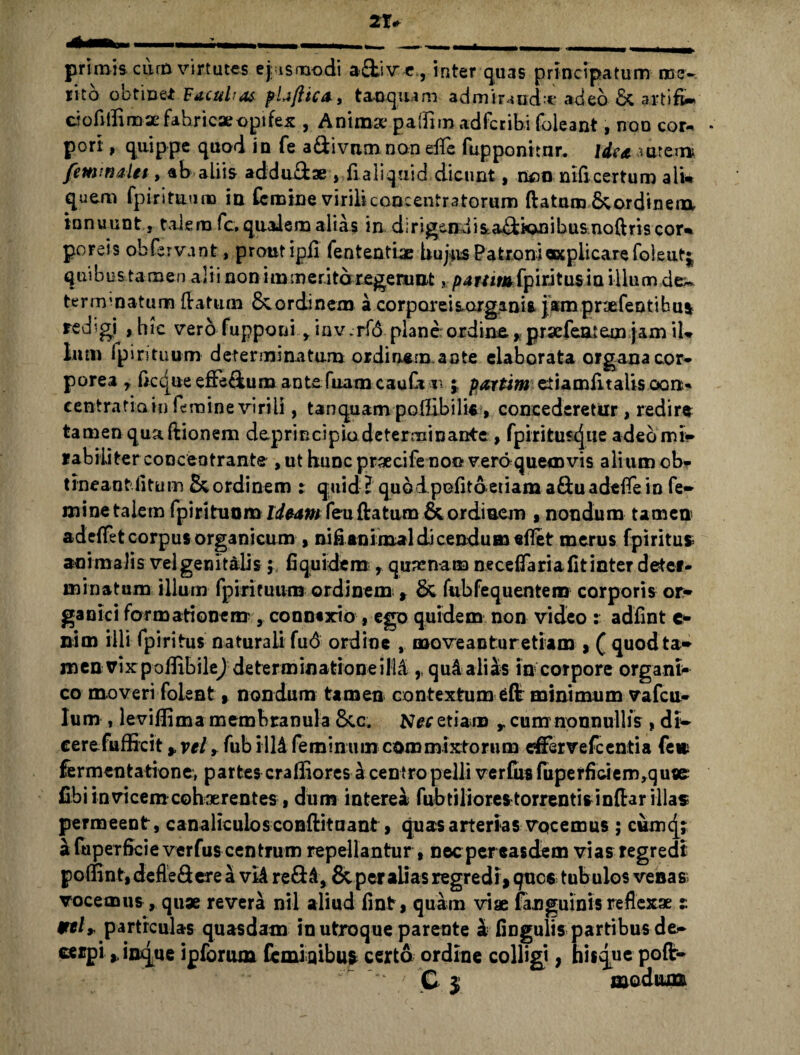 21.
primis cum virtutes ejusmodi activæ, inter quas principatum me-
rito obtinet Facultas plastica, tanquam admirandæ adeò & artifi-
ciosissimæ fabricæ opifex, Animæ passim adscribi soleant, non cor-
pori, quippe quod in se activum non esse supponitur. Idea autem
seminales, ab aliis adductæ, si aliquid dicunt, non nisi certum ali-
quem spirituum in semine virili concentratorum statum & ordinem
innuunt, talem sc. qualem alias in dirigendis actionibus nostris cor-
poreis observant, prout ipsi sententiæ hujus Patroni explicare solent;
quibus tamen alii non immeritò regerunt, partim spiritus in illum de-
terminatum statum & ordinem à corporeis organis jam præsentibus
redigi, hîc verò supponi, inversô planè ordine, præsentem jam il-
lum spirituum determinatum ordinem ante elaborata organa cor-
porea, sicque effectum ante suam causam; partim etiamsi talis con-
centratio in semine virili, tanquam possibilis, concederetur, redire
tamen quæstionem de principio determinante, spiritusque adeò mi-
rabiliter concentrante, ut hunc præcise non verò quemvis alium ob-
tineant situm & ordinem: quid? quòd positô etiam actu adesse in se-
mine talem spirituum Ideam seu statum & ordinem, nondum tamen
adesset corpus organicum, nisi animal dicendum esset merus spiritus
animalis vel genitalis; siquidem, quænam necessaria sit inter deter-
minatum illum spirituum ordinem, & subsequentem corporis or-
ganici formationem, connexio, ego quidem non video: adsint e-
nim illi spiritus naturali suô ordine, moveantur etiam, (quod ta-
men vix possibile) determinatione illâ, quâ aliàs in corpore organi-
co moveri solent, nondum tamen contextum est minimum vascu-
lum, levissima membranula &c. Nec etiam, cum nonnullis, di-
cere sufficit, vel, sub illâ seminum commixtorum effervescentia seu
fermentatione, partes crassiores à centro pelli versus superficiem, quæ
sibi invicem cohærentes, dum intereà subtiliores torrentis instar illas
permeent, canaliculos constituant, quas arterias vocemus; cùmq;
à superficie versus centrum repellantur, nec per easdem vias regredi
possint, deflectere à viâ rectâ, & per alias regredi, quos tubulos venas
vocemus, quæ reverà nil aliud sint, quàm viæ sanguinis reflexæ:
vel, particulas quasdam in utroque parente à singulis partibus de-
cerpi, inque ipsorum seminibus certô ordine colligi, hisque post-
C 3 modum